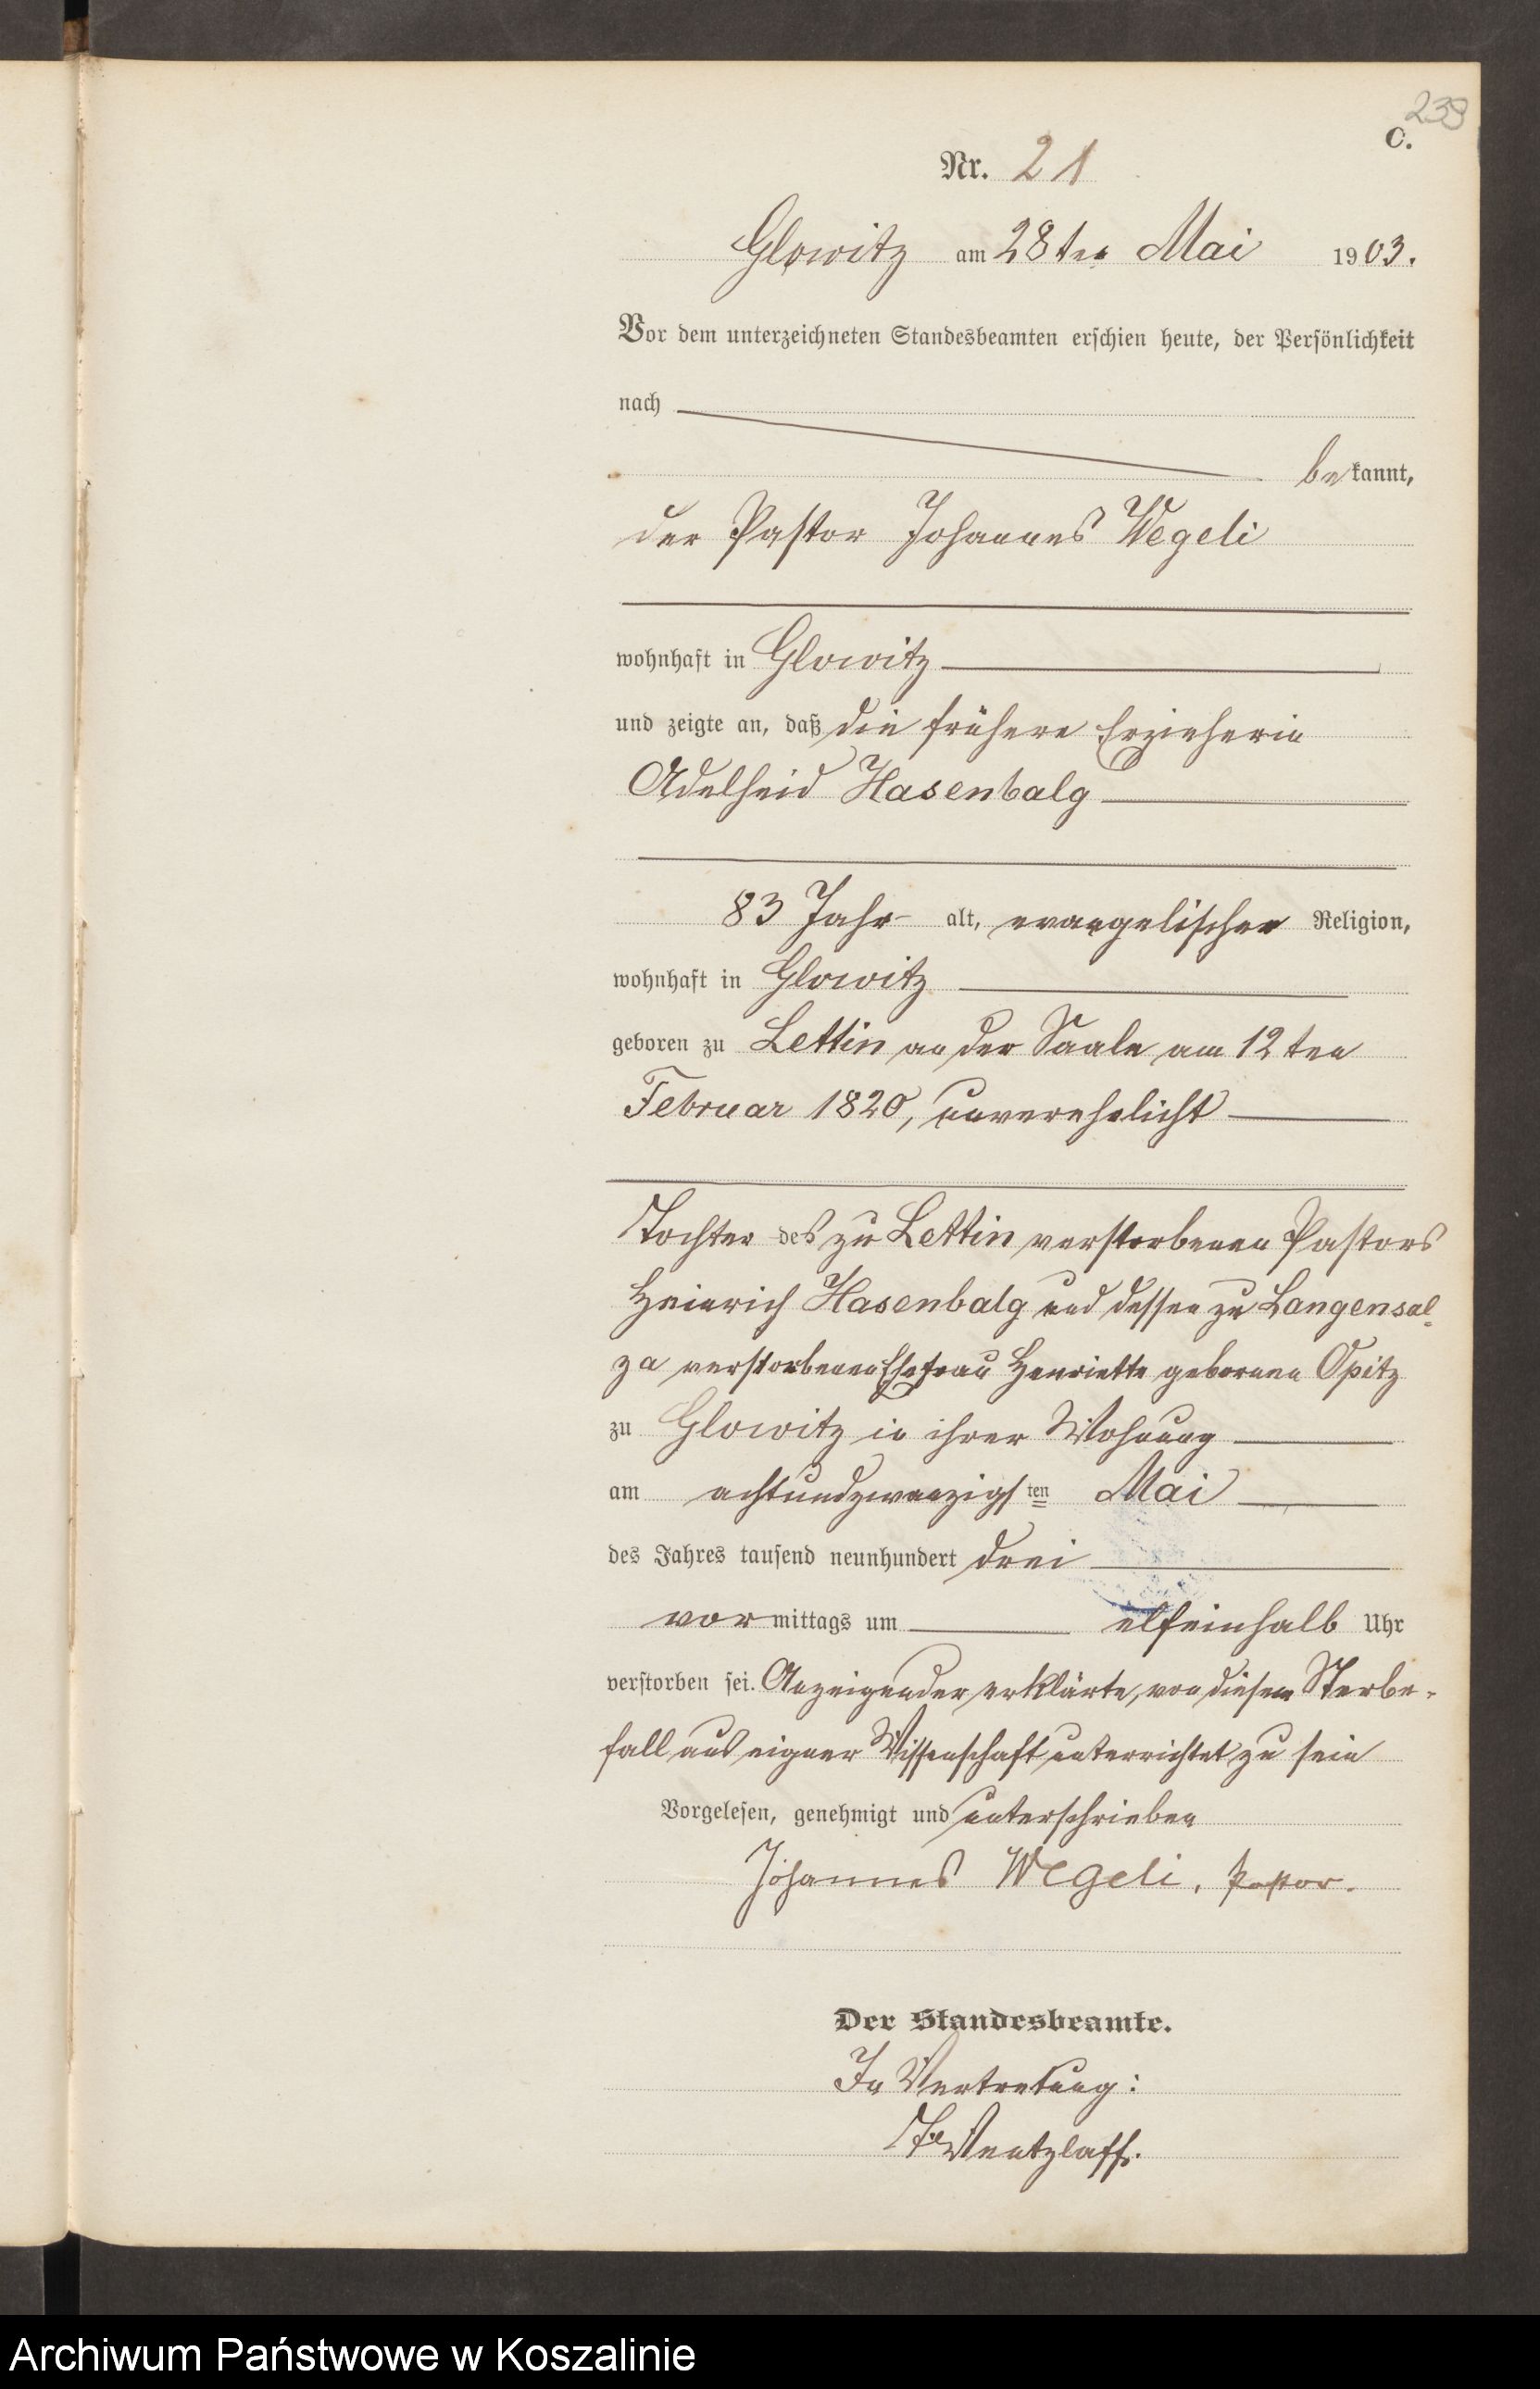 239
C.
Nr. 21
Glowitz am 28ten Mai 1903.
Vor dem unterzeichneten Standesbeamten erschien heute, der Persönlichkeit
nach
bekannt,
der Pastor Johannes Wegeli
wohnhaft in Glowitz
und zeigte an, daß die frühere Erzieherin
Adelheid Hasenbalg
83 Jahr alt, evangelischer Religion,
wohnhaft in Glowitz
geboren zu Lettin an der Saale am 12ten
Februar 1820, unverehelicht
Tochter des zu Lettin verstorbenen Pastors
Heinrich Hasenbalg und dessen zu Langensal-
za verstorbenen Ehefrau Henriette geborenen Opitz
zu Glowitz in ihrer Wohnung
am achtundzwanzigsten Mai
des Jahres tausend neunhundert drei
vormittags um elfeinhalb Uhr
verstorben sei. Anzeigender erklärte, von diesem Sterbe-
fall aus eigner Wissenschaft unterrichtet zu sein
Vorgelesen, genehmigt und unterschrieben
Johannes Wegeli, Pastor.
Der Standesbeamte.
In Vertretung:
Wentzlaff.
Archiwum Państwowe w Koszalinie